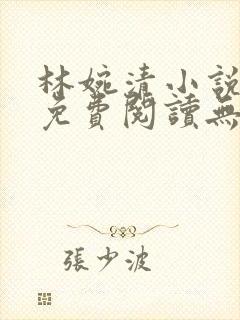 林婉清小說
免費閱讀無
張少波